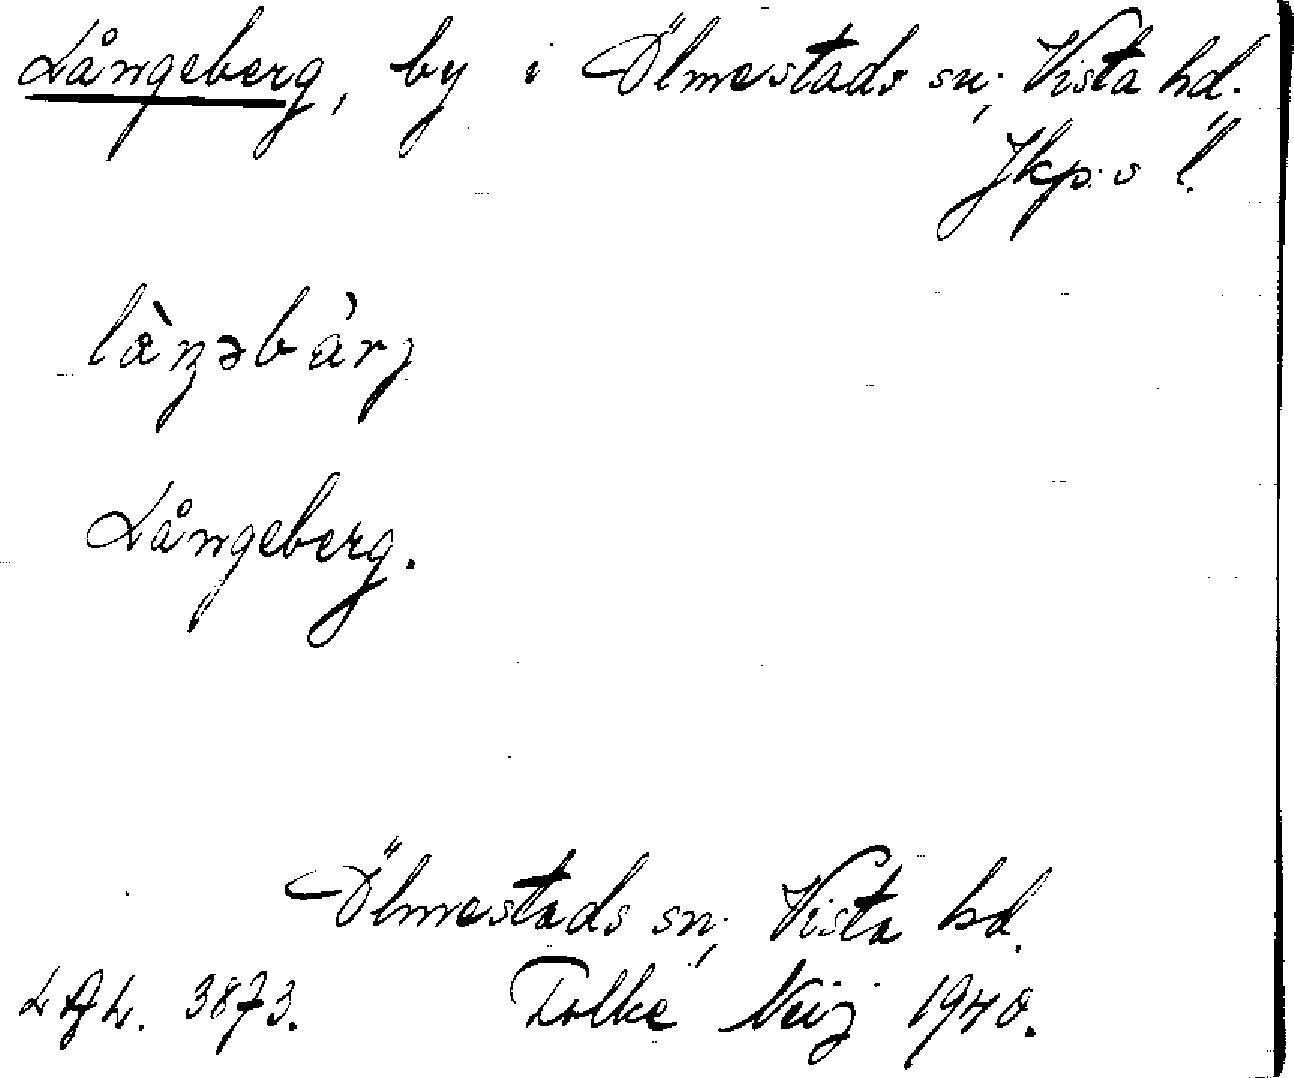 Långeberg, by i Ölmestads sn; Vista hd.,
Jkp:s l.
Långeberg.
Ölmestads sn; Vista hd.
3873. Folke Neij 1940.